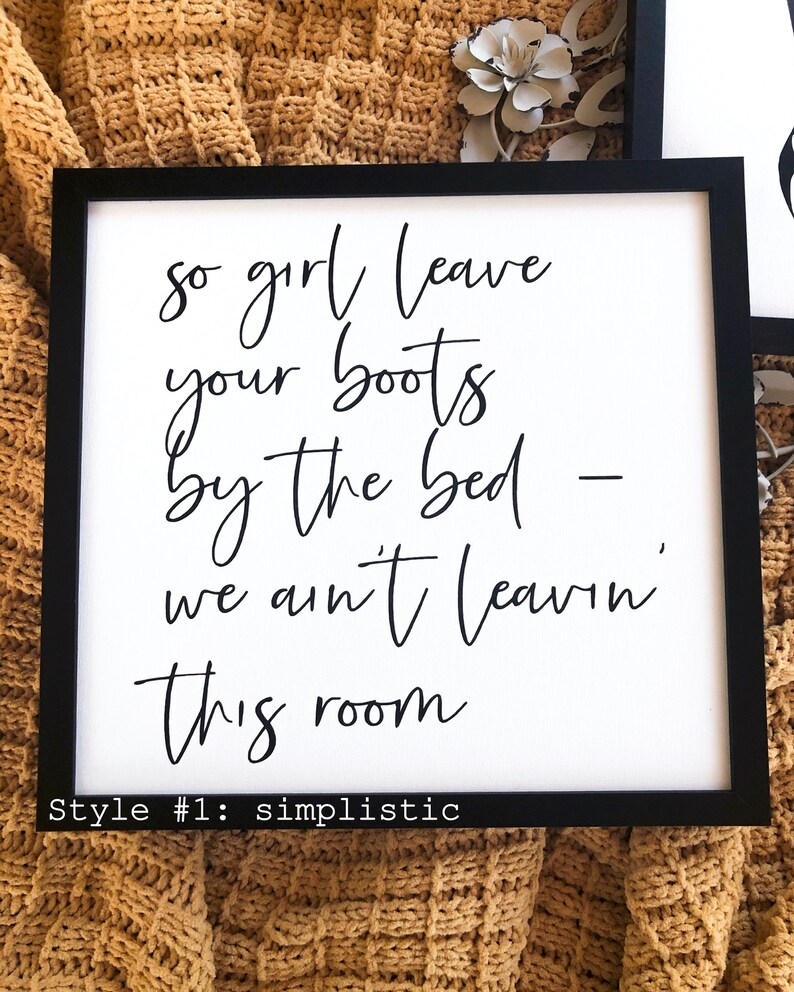 so girl leave
your boots
by the bed –
we ain't leavin'
this room
Style #1: simplistic